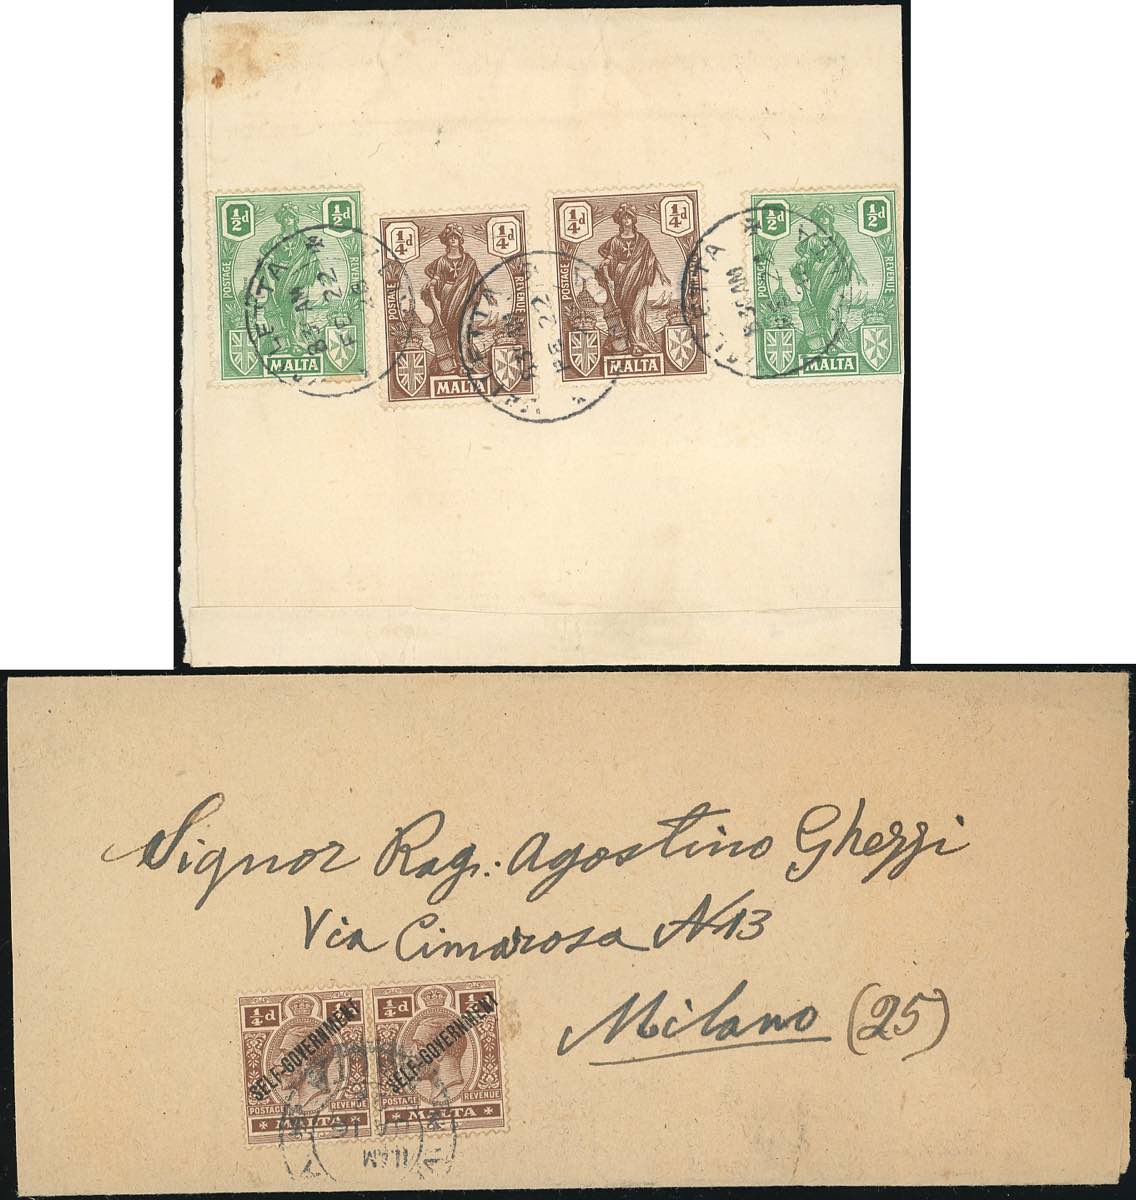 ½d ½d
POSTAGE REVENUE
MALTA
¼d ¼d
POSTAGE REVENUE
MALTA
¼d ¼d
POSTAGE REVENUE
MALTA
½d ½d
POSTAGE REVENUE
MALTA
VALLETTA
AM
FE 22
Signor Rag. Agostino Ghezzi
Via Cimarosa N 13
Milano (25)
¼d ¼d
SELF-GOVERNMENT
POSTAGE REVENUE
MALTA
¼d ¼d
SELF-GOVERNMENT
POSTAGE REVENUE
MALTA
11AM